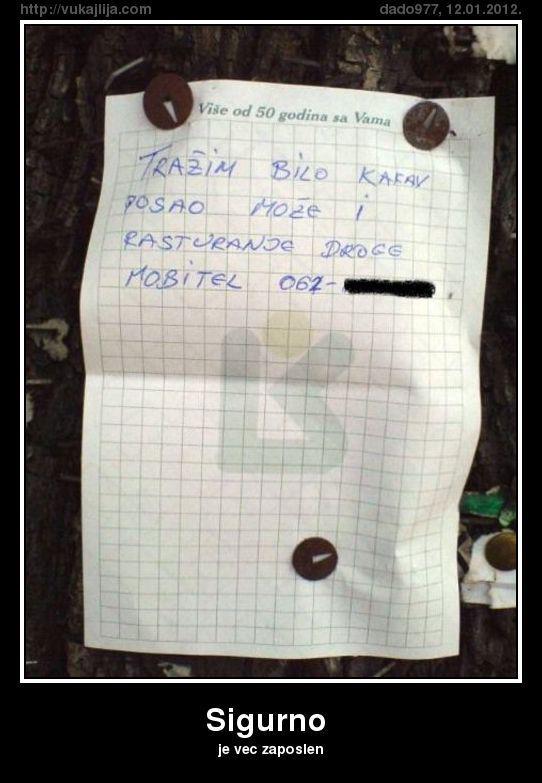 http://vukajlija.com dado977, 12.01.2012.
Više od 50 godina sa Vama
TRAŽIM BILO KAKAV
POSAO MOŽE I
RASTURANJE DROGE
MOBITEL 062-
Sigurno
je vec zaposlen